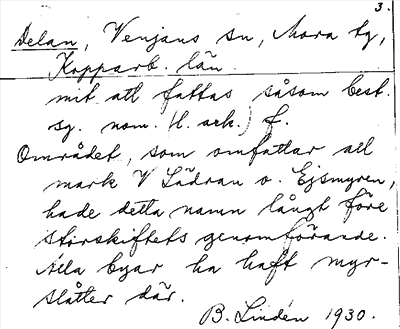 3.
Delan, Venjans sn, Mora tg,
Kopparb. län.
mit att fattas såsom best.
sg. nom. (I. ark.) f.
Området, som omfattar all
mark V Lädran o. Ejsmyren,
hade detta namn långt före
storskiftets genomförande.
Alla byar ha haft myr-
slåtter där.
B. Lindén 1930.